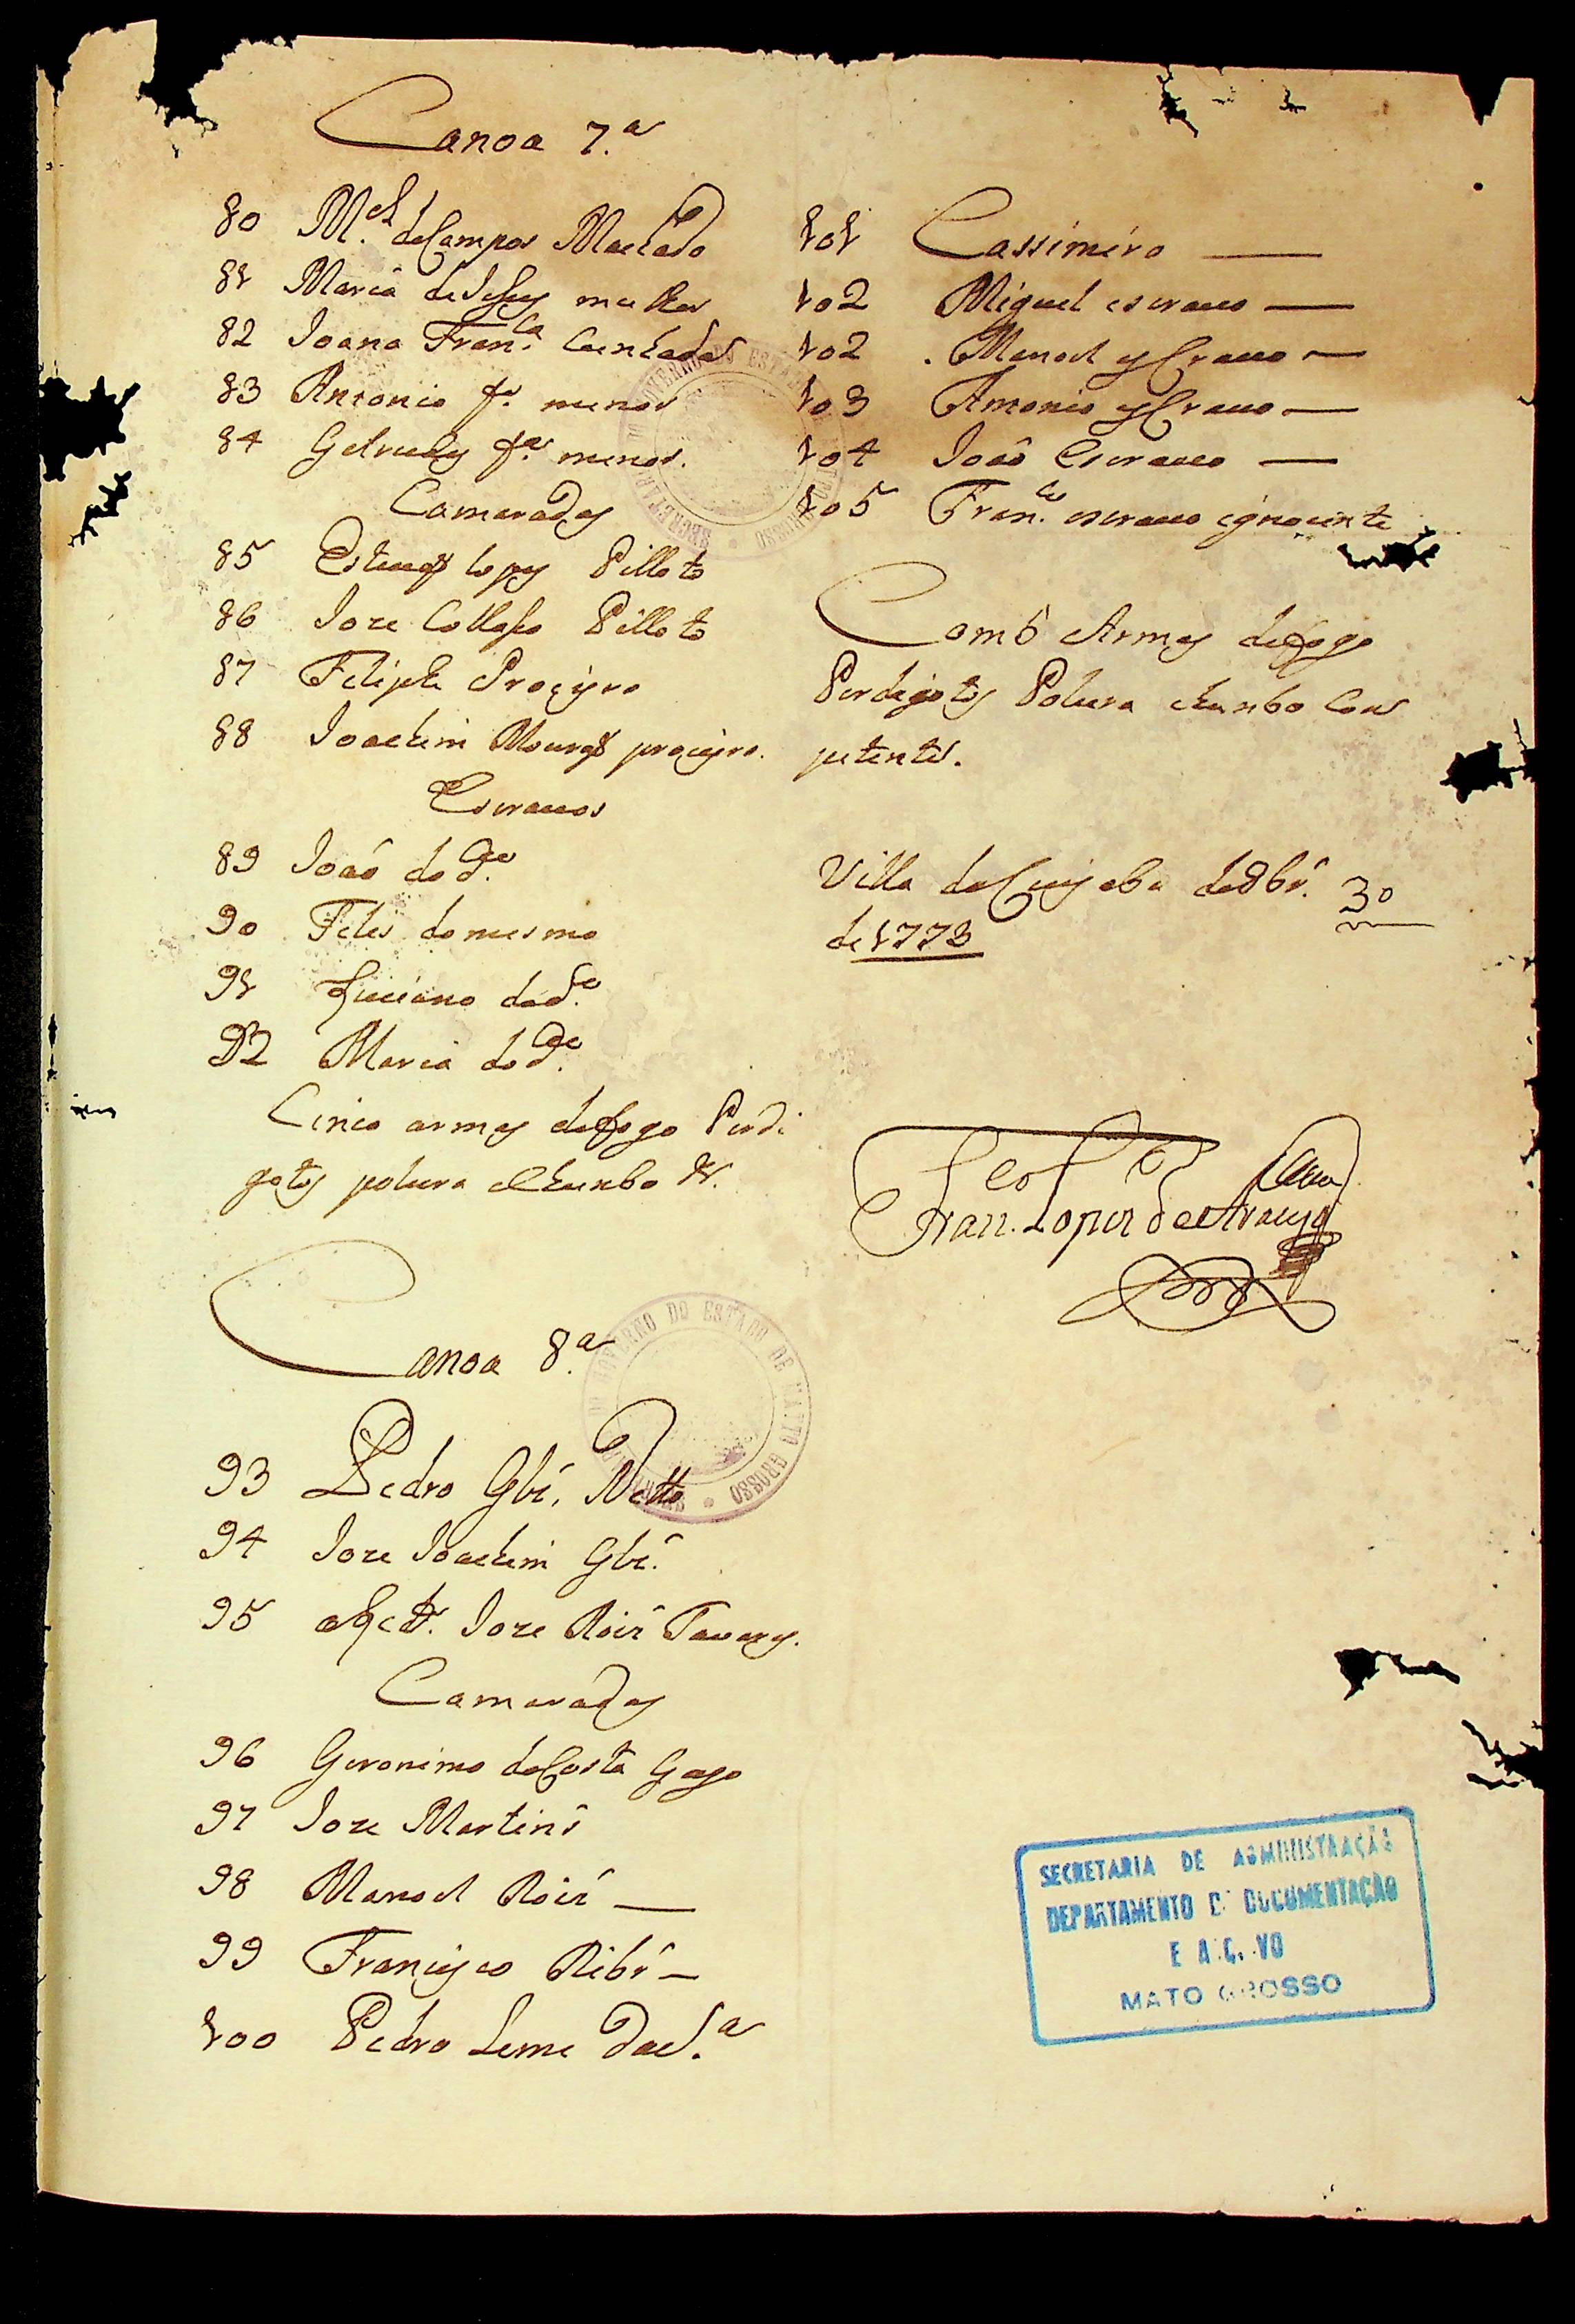 Canoa 7.a
80 M.el de Campos Machado
81 Maria de Jesus mulher
82 Joana Fran.ca Cunhada
83 Antonio f.o menor
84 Getrudes f.a menor.
Camaradas
85 Esteuaõ lopes Pilloto
86 Joze Collaso Pilloto
87 Felipe Proeyro
88 Joachim Mouraõ proeyro.
Escrauos
89 Joaõ do d.o
90 Feles do mesmo
91 Luciano do d.o
92 Maria do d.o
Cinco armas de fogo Perdi
gotos polura e chunbo &.
Canoa 8.a
93 Pedro Glz. Netto
94 Joze Joachim Glz.
95 Joze Roiz Tauares.
Camaradas
96 Geronimo da Costa Gago
97 Joze Martins
98 Manoel Roiz —
99 Francisco Ribr.o —
100 Pedro Leme da S.a
101 Cassimiro —
102 Miguel escrauo —
102 . Manoel escrauo —
103 Antonio escrauo —
104 Joaõ Escrauo —
105 Fran.co escrauo egnocente
Com 6 Armas de fogo
Perdigotos Polura chunbo Com
petente.
Villa do Cuyaba de 8br.o 30
de 1773
Fran.co Lopes de Araujo
SECRETARIA DO GOVERNO DO ESTADO DE MATTO GROSSO
SECRETARIA DO GOVERNO DO ESTADO DE MATTO GROSSO
SECRETARIA DE ADMINISTRAÇÃO
DEPARTAMENTO DE DOCUMENTAÇÃO
E ARQUIVO
MATO GROSSO